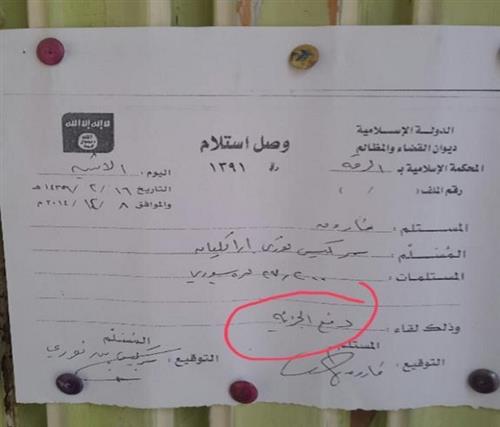 الدولة الإسلامية
ديوان القضاء والمظالم
المحكمة الإسلامية بـ الرقة
رقم الملف: ( / )
وصل استلام
رقم ١٣٩١
لا إله إلا الله
الله رسول محمد
اليوم: الاثنين
التاريخ ١٦ / ٢ / ١٤٣٦ هـ
والموافق ٨ / ١٢ / ٢٠١٤ م
المستلم: فاروق
المُسلّم: سركيس نوري اراكليان
المستلمات: ليرة سوري
وذلك لقاء: دفع الجزية
المستلم
التوقيع: فاروق
المُسلّم
التوقيع: سركيس نوري